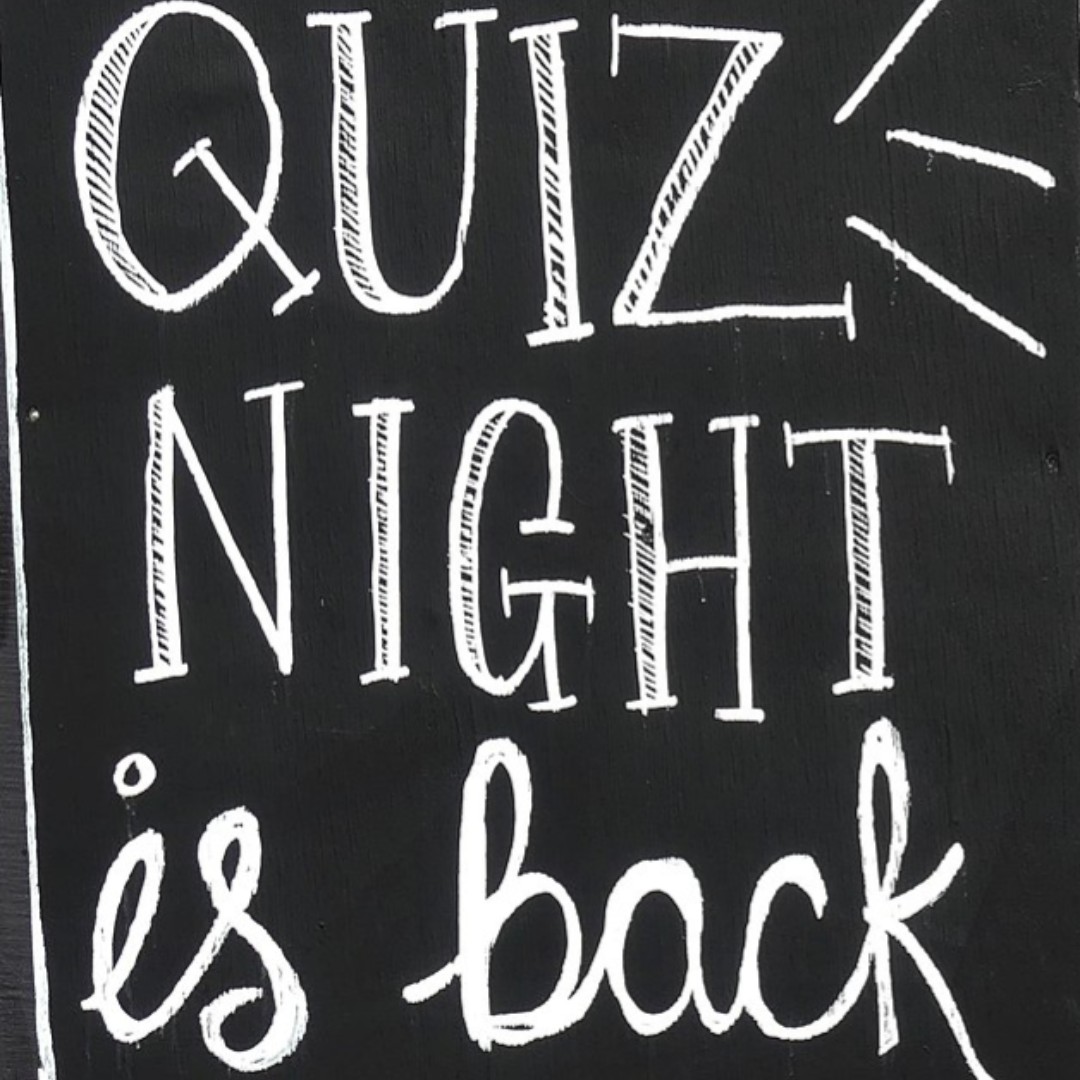 QUIZ
NIGHT
is back